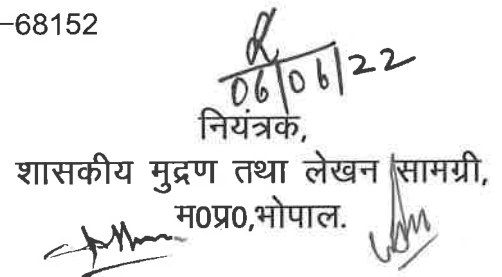 -68152
06/06/22
नियंत्रक,
शासकीय मुद्रण तथा लेखन सामग्री,
म0प्र0,भोपाल.